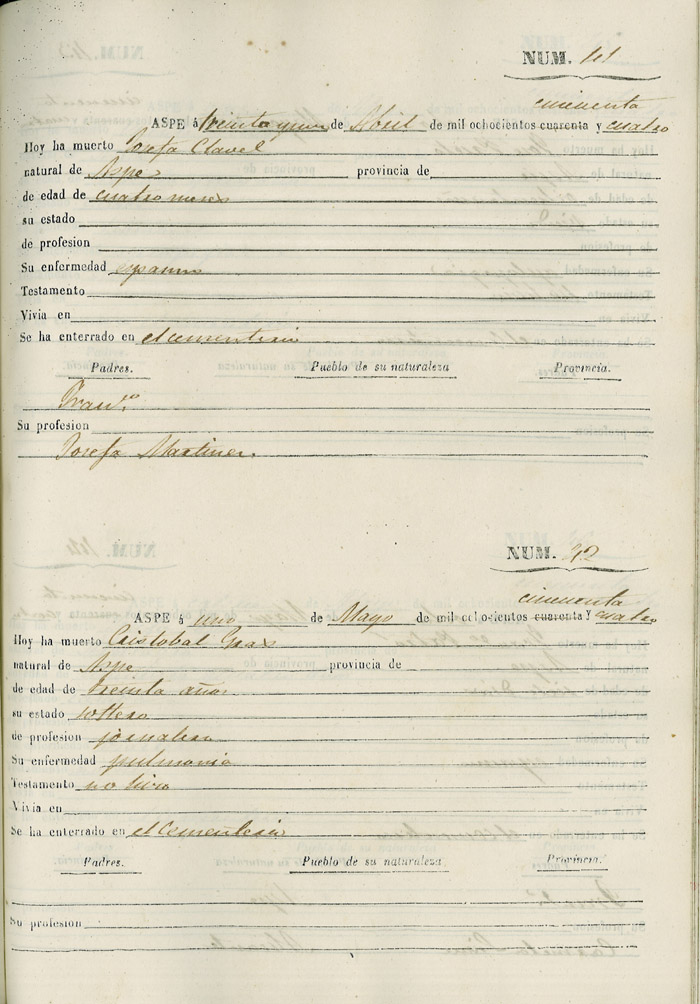 NUM. 41
cincuenta
ASPE á treinta y uno de Abril de mil ochocientos cuarenta y cuatro
Hoy ha muerto Josefa Clavel
natural de Aspe provincia de
de edad de cuatro meses
su estado
de profesion
Su enfermedad espasmo
Testamento
Vivia en
Se ha enterrado en el cementerio
Padres. Pueblo de su naturaleza Provincia.
Fran.co
Su profesion
Josefa Martinez
NUM. 42
cincuenta
ASPE á uno de Mayo de mil ochocientos cuarenta y cuatro
Hoy ha muerto Cristobal
natural de Aspe provincia de
de edad de treinta años
su estado soltero
de profesion jornalero
Su enfermedad pulmonia
Testamento no hizo
Vivia en
Se ha enterrado en el Cementerio
Padres. Pueblo de su naturaleza Provincia.
Su profesion